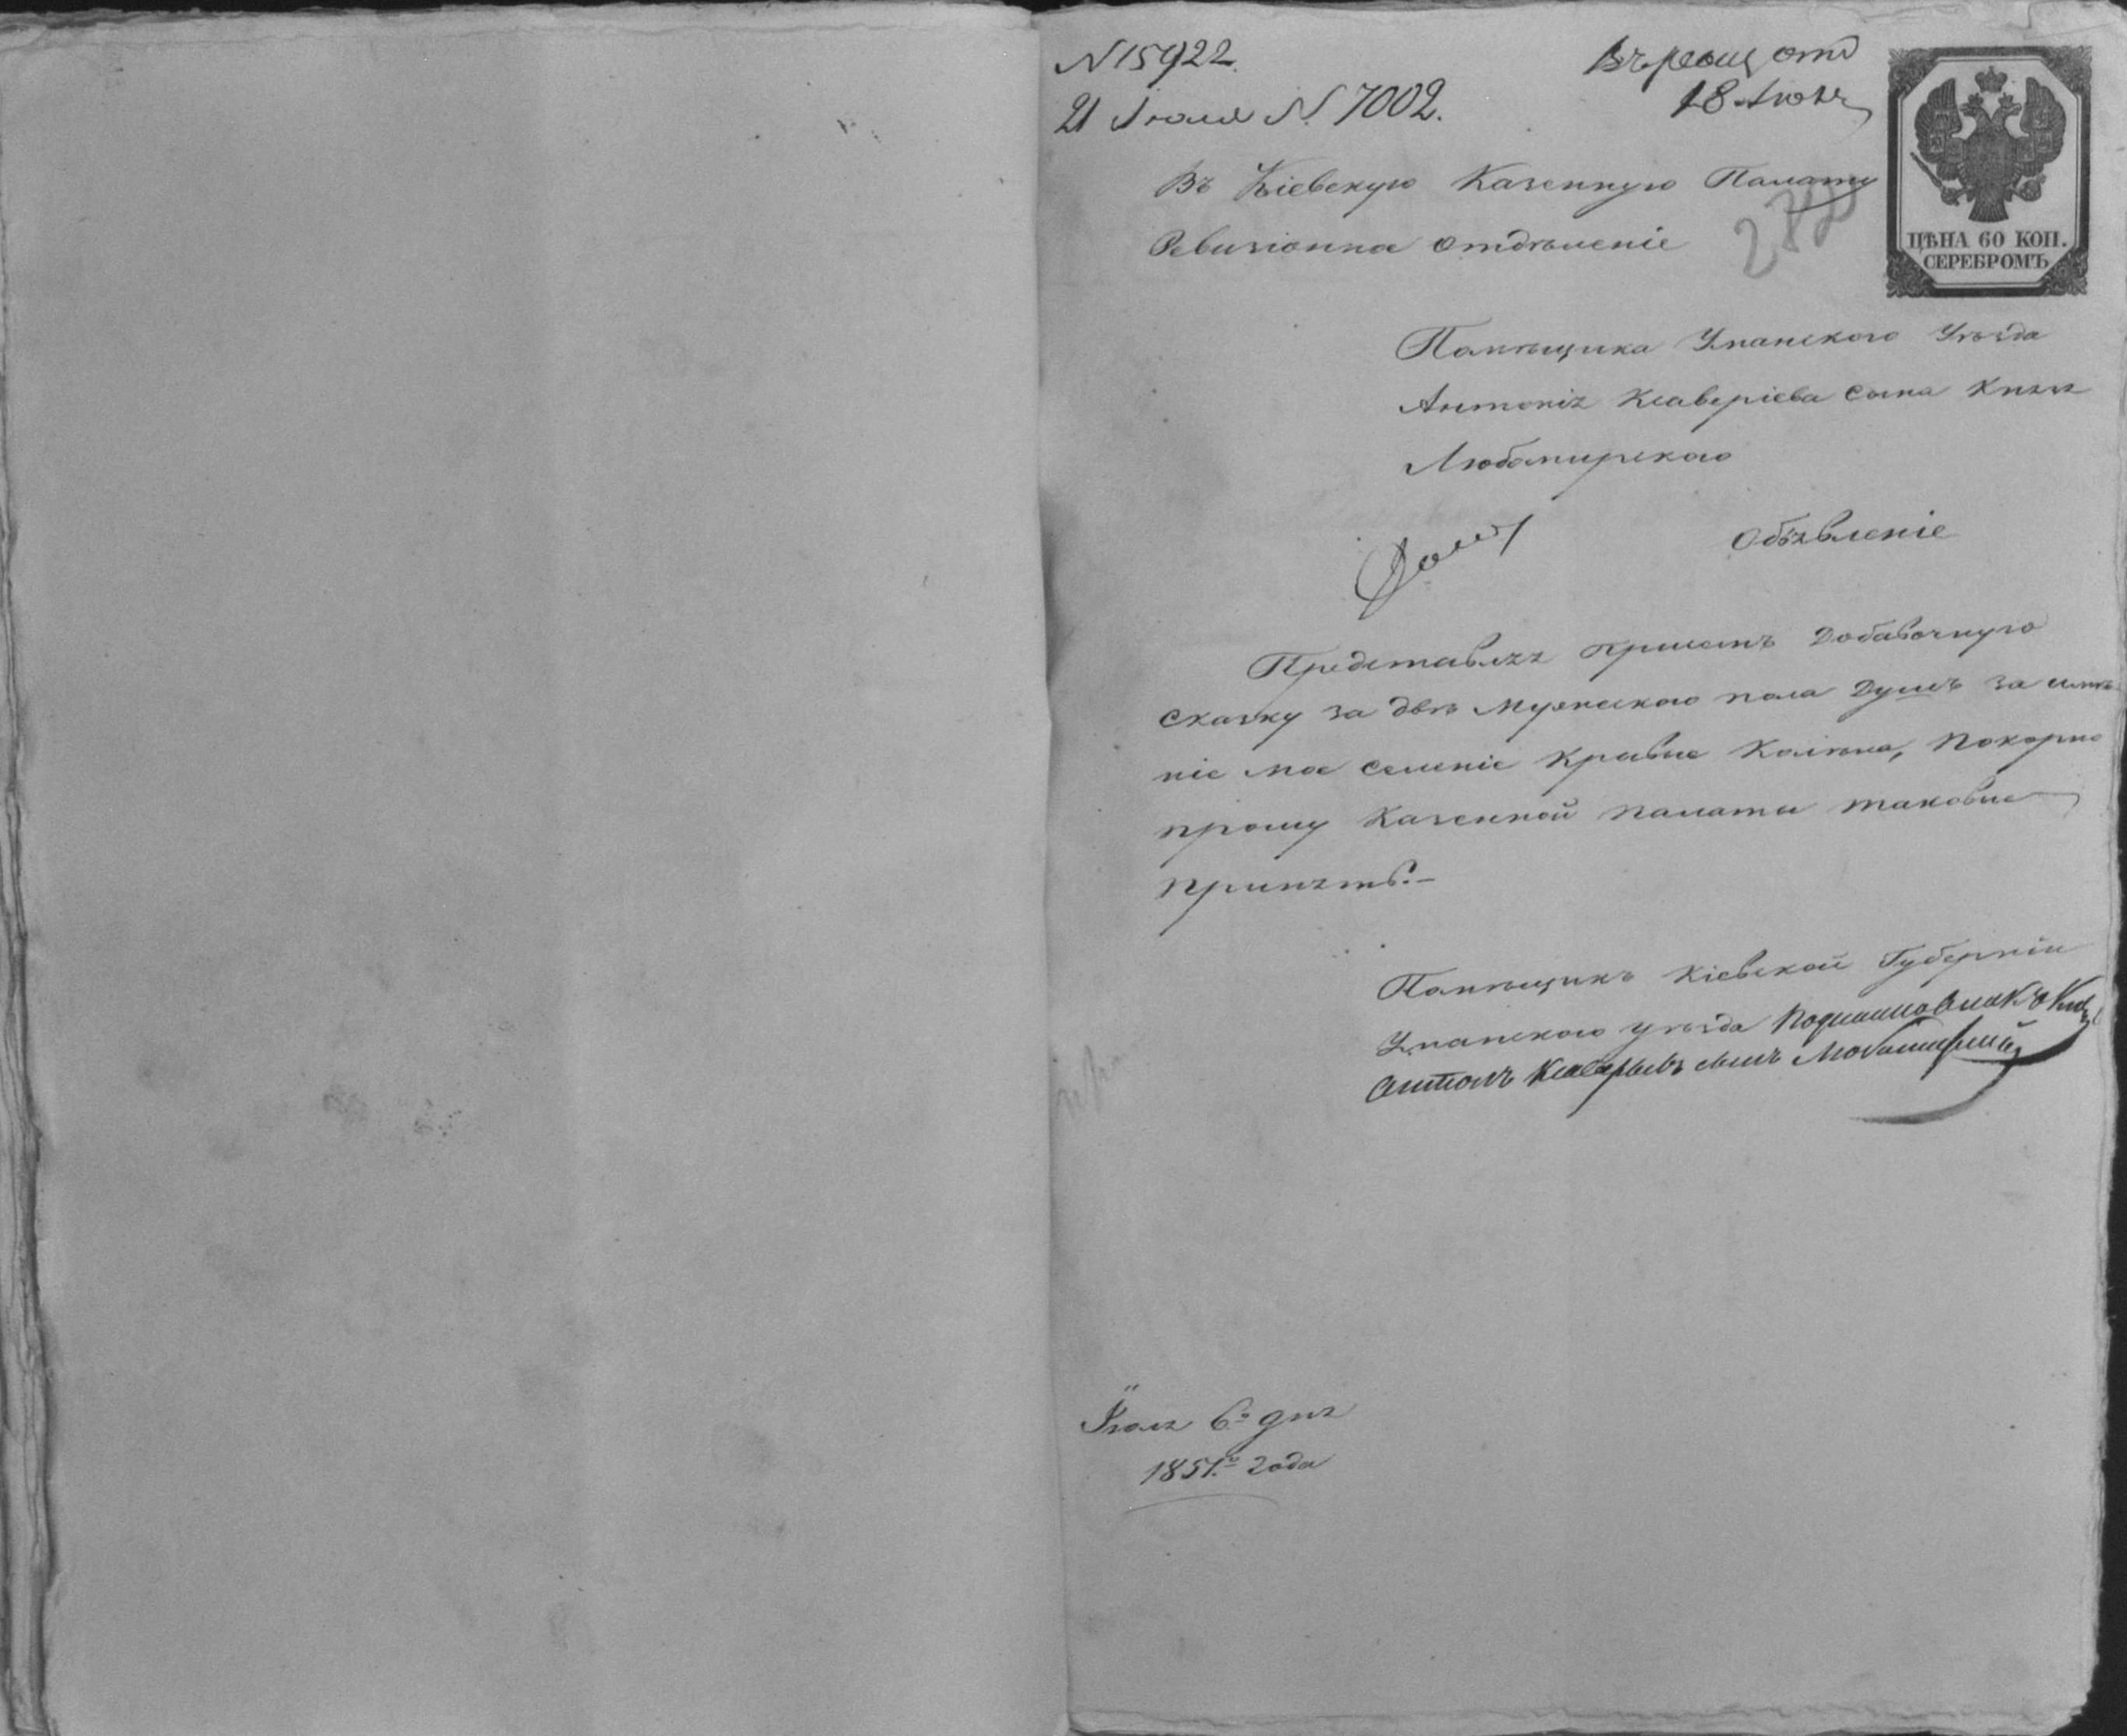 N 15922
21 Июля N. 7002.
18 Июля
ЦѢНА 60 КОП.
СЕРЕБРОМЪ
Въ Кіевскую Казенную Палату
Ревизіонна отдѣленіе
Помѣщика Уманского Уѣзда
Антонія Ксаверіева сына Князя
Любомирского
Объявленіе
Представляя присемъ Добавочнуго
сказку за двѣ Мужеского пола Душъ за имѣ
ніе мое селеніе Кривые Колѣна, Покорно
прошу Казенной палаты таковые
принять.-
Помѣщикъ Кіевской Губерніи
Уманского уѣзда
Антонъ Ксаверьевъ сынъ Любомирскій
Іюля 6го дня
1851.го года